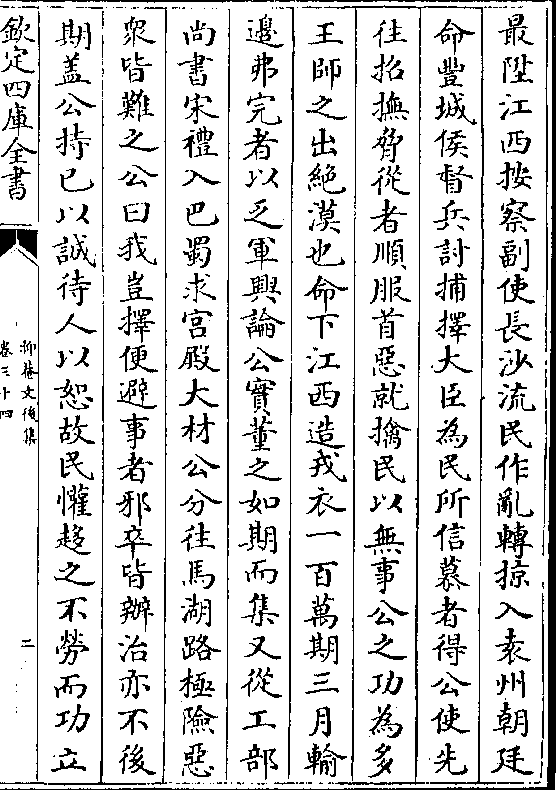 最陞江西按察副使長沙流民作亂轉掠入袁州朝廷
命豐城侯督兵討捕擇大臣為民所信慕者得公使先
往招撫脅從者順服首惡就擒民以無事公之功為多
王師之出絶漠也命下江西造戎衣一百萬期三月輸
邊弗完者以乏軍興論公實董之如期而集又從工部
尚書宋禮入巴蜀求宫殿大材公分往馬湖路極險惡
衆皆難之公曰我豈擇便避事者邪卒皆辦治亦不後
期盖公持已以誠待人以恕故民懽趍之不勞而功立
欽定四庫全書
抑菴文後集
卷三十四
二